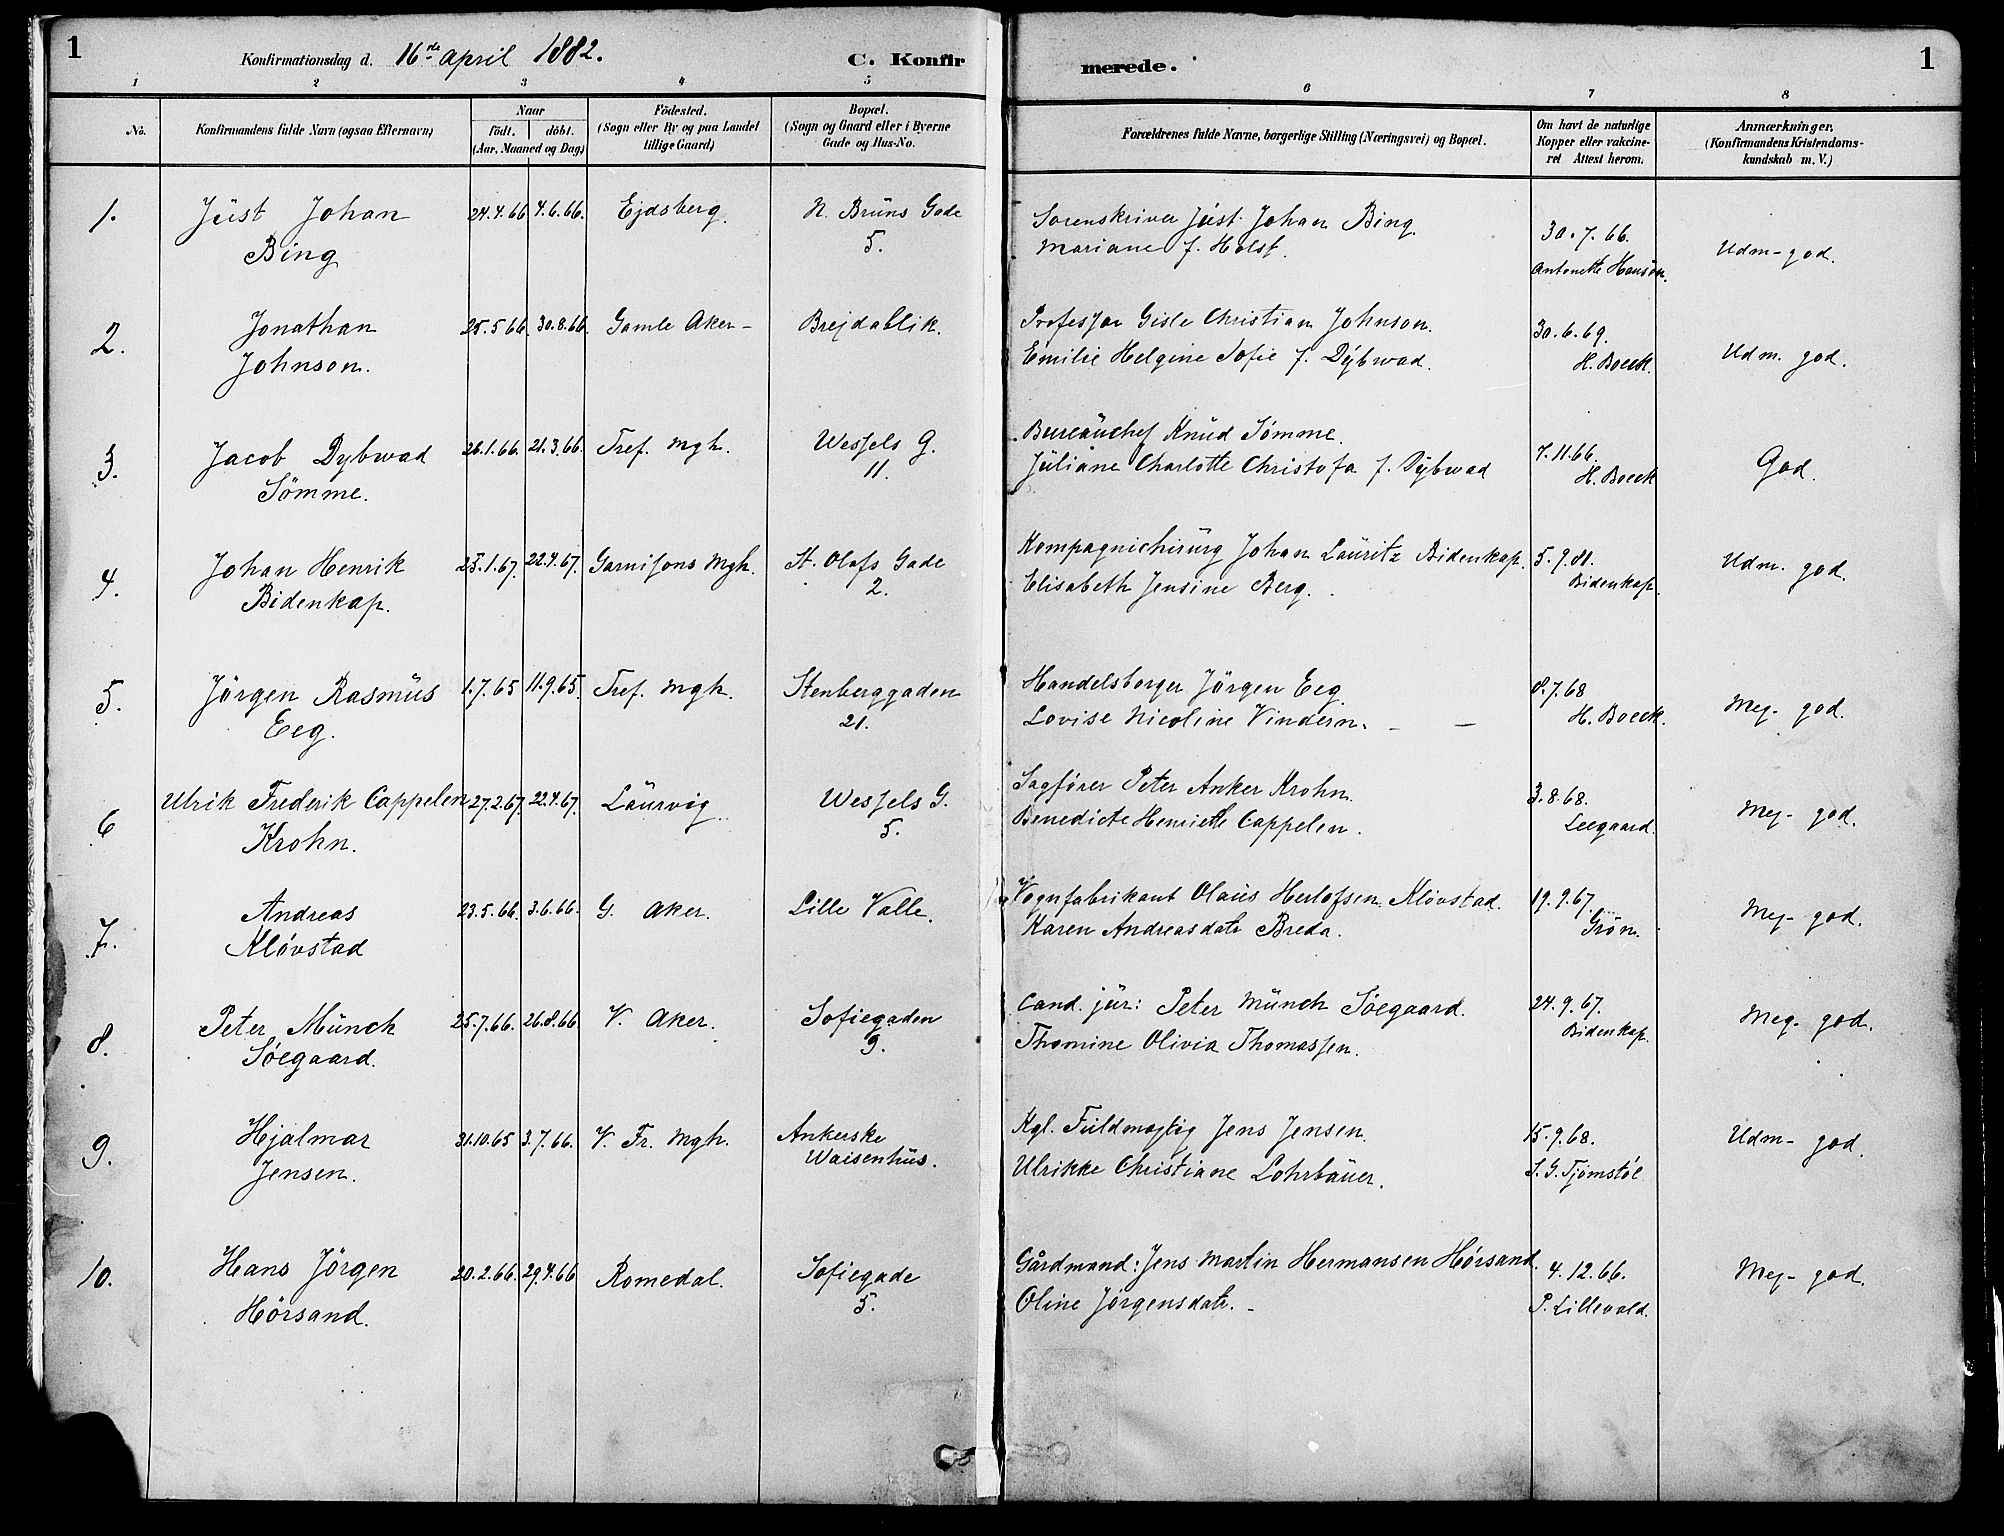 1
Konfirmationsdag d. 16de April 1882.
C. Konfir
merede.
1
1 2 3 4 5 6 7 8
No.
Konfirmandens fulde Navn (ogsaa Efternavn)
Naar
födt. döbt.
(Aar, Maaned og Dag)
Födested.
(Sogn eller By og paa Landet
tillige Gaard)
Bopæl.
(Sogn og Gaard eller i Byerne
Gade og Hus-No.
Forældrenes fulde Navne, borgerlige Stilling (Næringsvei) og Bopæl.
Om havt de naturlige
Kopper eller vakcine-
ret Attest herom.
Anmærkninger,
(Konfirmandens Kristendoms-
kundskab m. V.)
1. Just Johan 24.4.66 4.6.66. Ejdsberg. N. Bruns Gade Sorenskriver Just Johan Bing. 30.7.66. Udm- god.
Bing 5. Mariane f. Holst. Antonette Hansen.
2. Jonathan 25.5.66. 30.8.66. Gamle Aker- Brejdablik. Professor Gisle Christian Johnson. 30.6.69. Udm. god.
Johnson. Emilie Helgine Sofie f. Dybwad. H. Boeck.
3. Jacob Dybwad 26.1.66. 21.3.66. Tref. Mgh. Wessels G. Bureauchef Knud Sömme. 7.11.66. God.
Sömme. 11. Juliane Charlotte Christofa f. Dybwad H. Boeck
4. Johan Henrik 25.1.67. 22.4.67. Garnisons Mgh. St. Olafs Gade Kompagnichirurg Johan Lauritz Bidenkap. 5.9.81. Udm. god.
Bidenkap. 2. Elisabeth Jensine Berg. Bidenkap.
5. Jörgen Rasmus 1.7.65 11.9.65. Tref. Mgh. Stenberggaden Handelsborger Jörgen Eeg. 8.7.68 Meg- god.
Eeg. 21. Lovise Nicoline Vindern. - - H. Boeck.
6 Ulrik Frederik Cappelen 27.2.67. 22.4.67. Laurvig Wessels G. Sagförer Peter Anker Krohn. 3.8.68. Meg- god.
Krohn. 5. Benedicte Henriette Cappelen. Leegaard.
7. Andreas 23.5.66. 3.6.66. G. Aker. Lille Valle. Vognfabrikant Olaus Herlofsen Klövstad. 19.9.67. Meg- god.
Klövstad Karen Andreasdatr Breda. Grön.
8. Peter Munch 25.7.66. 26.8.66. V. Aker. Sofiegaden Cand. jur: Peter Munch Söegaard. 24.9.67. Meg- god.
Söegaard. 9. Thomine Olivia Thomassen. Bidenkap.
9. Hjalmar 31.10.65 3.7.66. V. Fr. Mgh. Ankerske Kgl. Fuldmægtig Jens Jensen. 15.9.68. Udm- god.
Jensen. Waisenhus. Ulrikke Christiane Lohrbauer. S. G. Tjömstöl
10. Hans Jörgen 20.2.66. 29.4.66 Romedal. Sofiegade Gårdmand: Jens Martin Hermansen Hörsand. 4.12.66. Meg- god.
Hörsand. 5. Oline Jörgensdatr. - P. Lillevold.